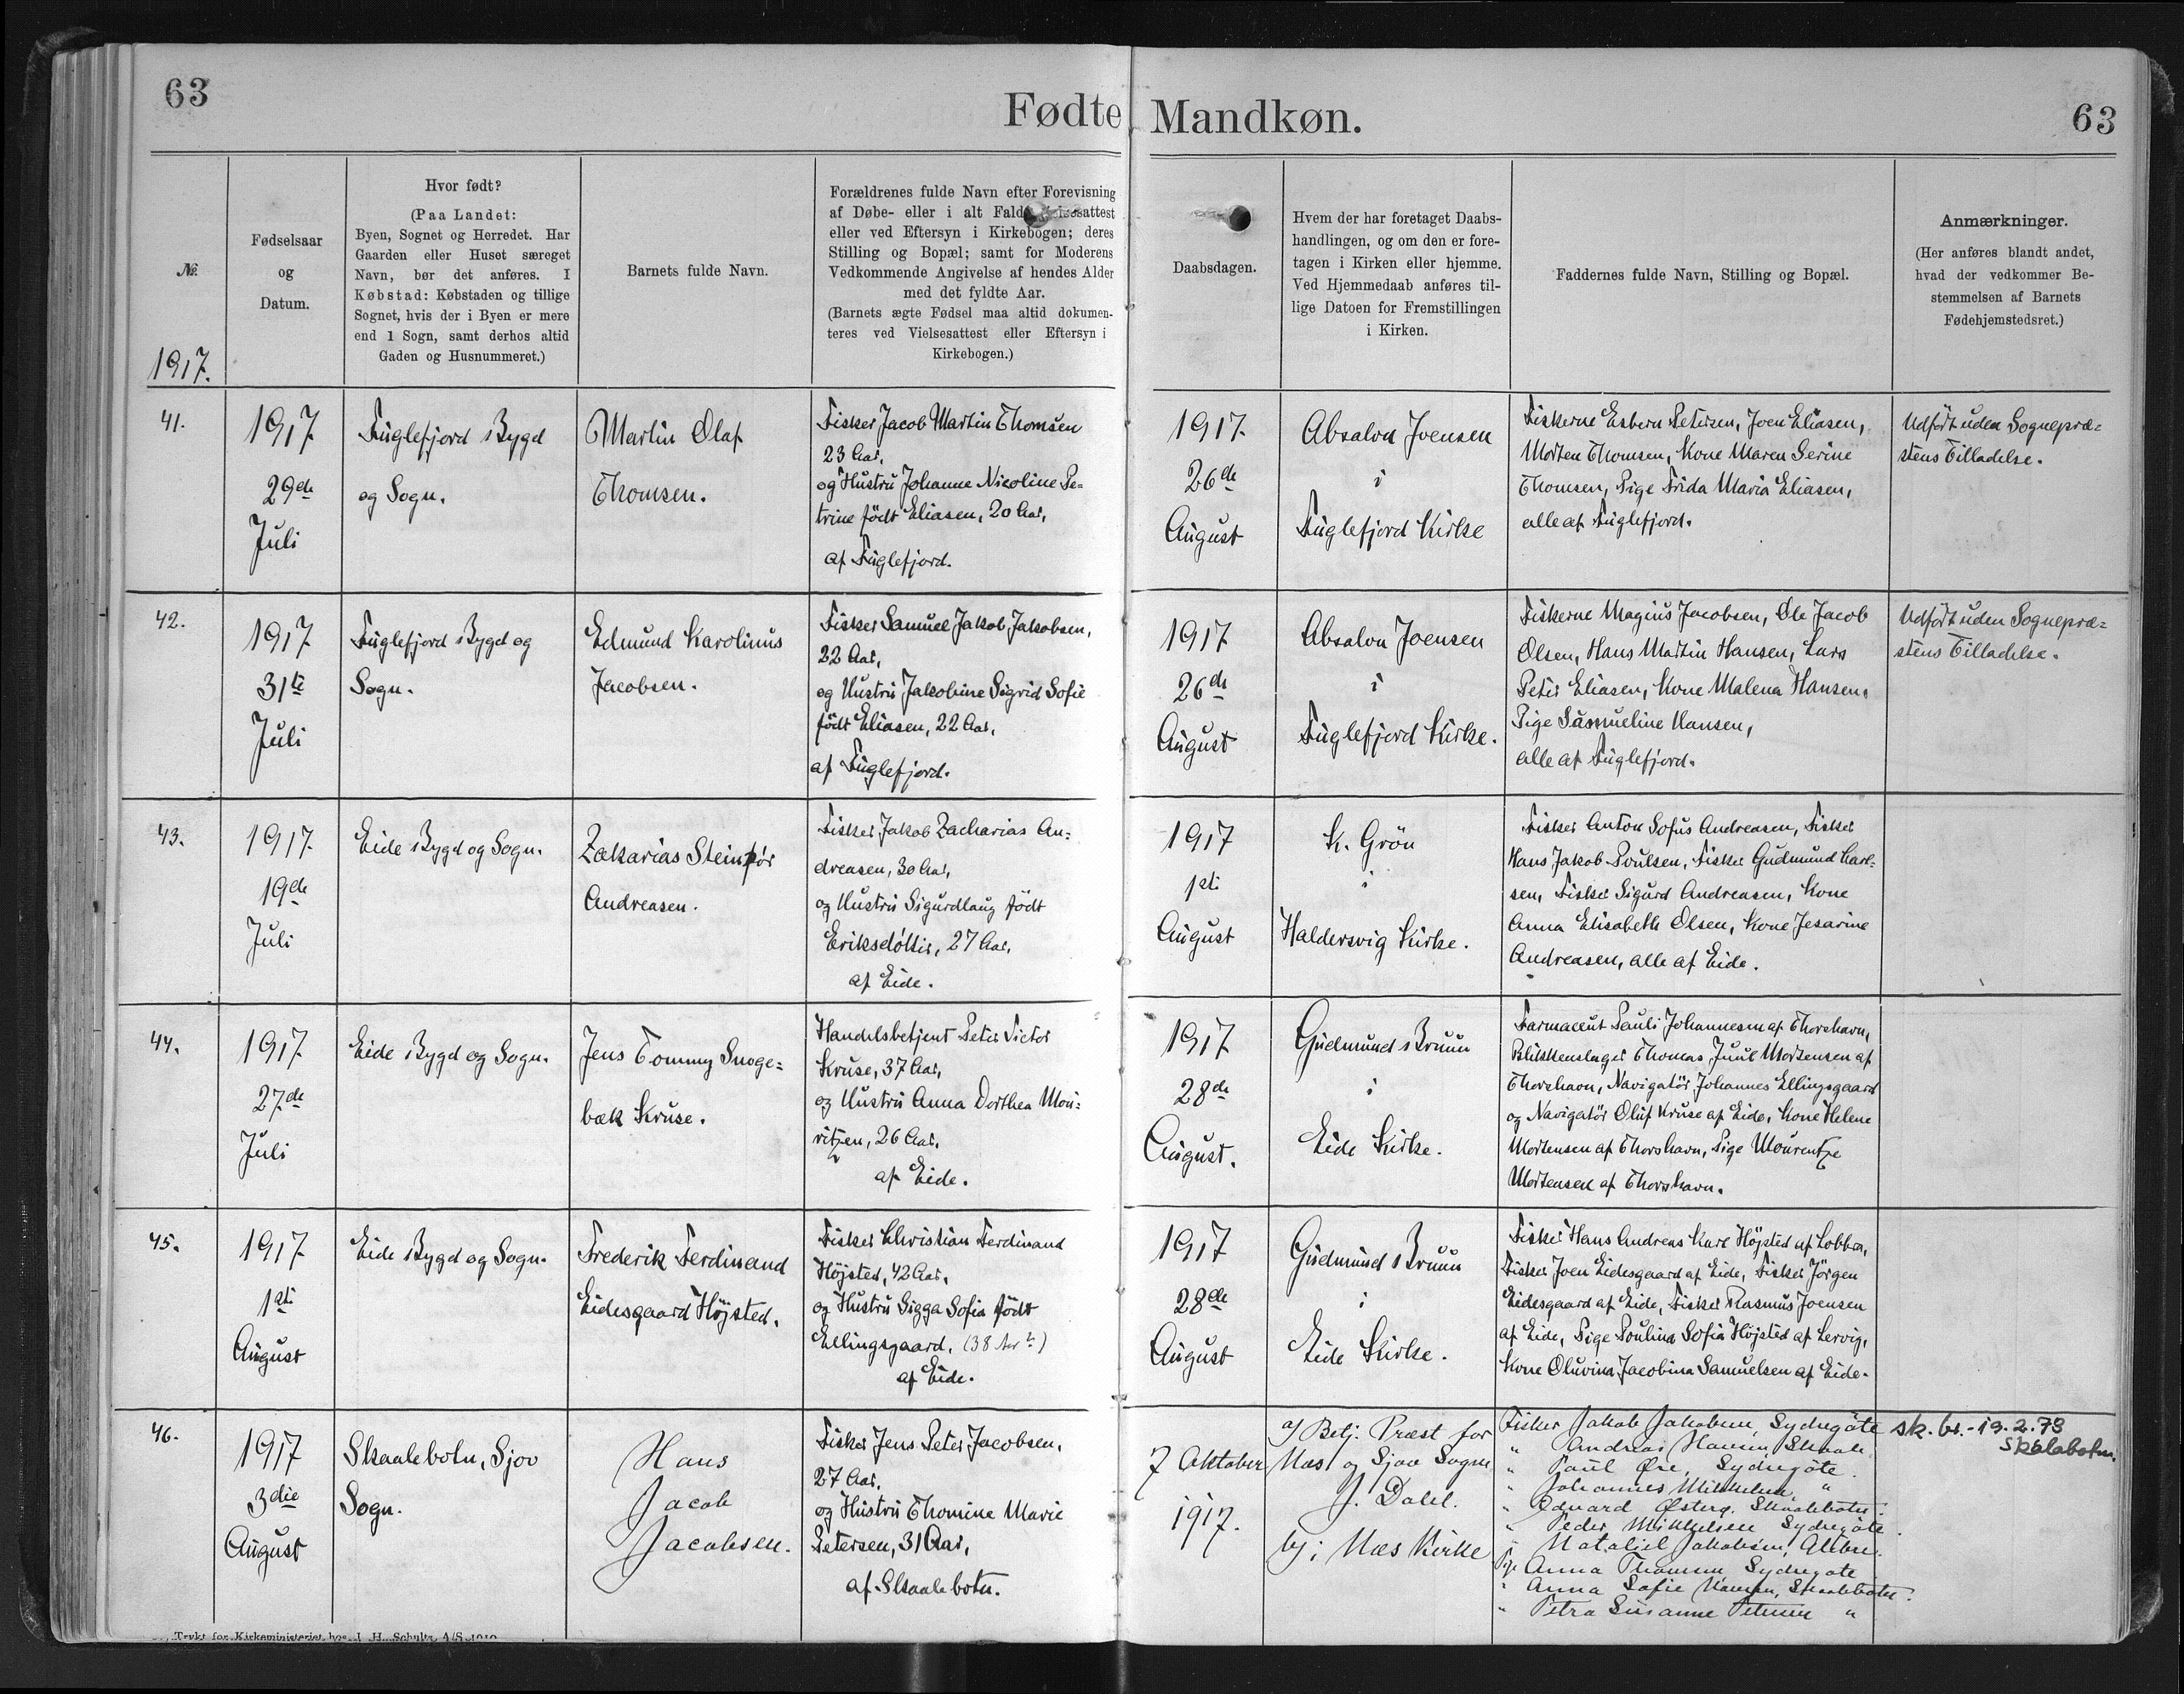 63
Fødte Mandkøn.
63
No.
Fødselsaar
og
Datum.
Hvor født?
(Paa Landet:
Byen, Sognet og Herredet. Har
Gaarden eller Huset særeget
Navn, bør det anføres. I
Købstad: Købstaden og tillige
Sognet, hvis der i Byen er mere
end 1 Sogn, samt derhos altid
Gaden og Husnummeret.)
Barnets fulde Navn.
Forældrenes fulde Navn efter Forevisning
af Døbe- eller i alt Fald
eller ved Eftersyn i Kirkebogen; deres
Stilling og Bopæl; samt for Moderens
Vedkommende Angivelse af hendes Alder
med det fyldte Aar.
(Barnets ægte Fødsel maa altid dokumen-
teres ved Vielsesattest eller Eftersyn i
Kirkebogen.)
Daabsdagen.
Hvem der har foretaget Daabs-
handlingen, og om den er fore-
tagen i Kirken eller hjemme.
Ved Hjemmedaab anføres til-
lige Datoen for Fremstillingen
i Kirken.
Faddernes fulde Navn, Stilling og Bopæl.
Anmærkninger.
(Her anføres blandt andet,
hvad der vedkommer Be-
stemmelsen af Barnets
Fødehjemstedsret.)
1917.
41.
1917
29de
Juli
Fuglefjord Bygd
og Sogn.
Martin Olaf
Thomsen.
Fisker Jacob Martin Thomsen
23 Aar,
og Hustru Johanne Nicoline Pe-
trine født Eliasen, 20 Aar,
af Fuglefjord.
1917.
26de
August
Absalon Joensen
i
Fuglefjord Kirke
Fiskerne Esbern Petersen, Joen Eliasen,
Morten Thomsen, Kone Maren Serine
Thomsen, Pige Frida Maria Eliasen,
alle af Fuglefjord.
Udført uden Sognepræ-
stens Tilladelse.
42.
1917
31te
Juli
Fuglefjord Bygd og
Sogn.
Edmund Karolinus
Jacobsen.
Fisker Samuel Jakob Jakobsen,
22 Aar,
og Hustru Jakobine Sigrid Sofie
født Eliasen, 22 Aar,
af Fuglefjord.
1917
26de
August
Absalon Joensen
i
Fuglefjord Kirke.
Fiskerne Magius Jacobsen, Ole Jacob
Olsen, Hans Martin Hansen, Lars
Peter Eliasen, Kone Malena Hansen,
Pige Samueline Hansen,
alle af Fuglefjord.
Udført uden Sognepræ-
stens Tilladelse.
43.
1917
19de
Juli
Eide Bygd og Sogn.
Zakarias Steinþór
Andreasen.
Fisker Jakob Zacharias An-
dreasen, 30 Aar,
og Hustru Sigurdlaug født
Eriksdóttir, 27 Aar,
af Eide.
1917
1ste
August
K. Grön
i
Haldersvig Kirke.
Fisker Anton Sofus Andreasen, Fisker
Hans Jakob Poulsen, Fisker Gudmund Carl-
sen, Fisker Sigurd Andreasen, Kone
Anna Elisabeth Olsen, Kone Jesarine
Andreasen, alle af Eide.
44.
1917
27de
Juli
Eide Bygd og Sogn.
Jens Tommy Snoge-
bæk Kruse.
Handelsbetjent Peter Victor
Kruse, 37 Aar,
og Hustru Anna Dorthea Mou-
ritzen, 26 Aar,
af Eide.
1917
28de
August.
Gudmund Bruun
i
Eide Kirke.
Farmaceut Pauli Johannesen af Thorshavn,
Blikkenslager Thomas Juul Mortensen af
Thorshavn, Navigatör Johannes Ellingsgaard
og Navigatör Oluf Kruse af Eide, Kone Helene
Mortensen af Thorshavn, Pige Mourentze
Mortensen af Thorshavn.
45.
1917
1ste
August
Eide Bygd og Sogn.
Frederik Ferdinand
Eidesgaard Höjsted.
Fisker Christian Ferdinand
Höjsted, 42 Aar,
og Hustru Sigga Sofia født
Ellingsgaard, (38 Aar)
af Eide.
1917
28de
August
Gudmund Bruun
i
Eide Kirke.
Fisker Hans Andreas Karl Höjsted af Lobbra,
Fisker Joen Eidesgaard af Eide, Fisker Jörgen
Eidesgaard af Eide, Fisker Rasmus Joensen
af Eide, Pige Poulina Sofia Höjsted af Lervig,
Kone Oluvina Jacobina Samuelsen af Eide.
46.
1917
3die
August
Skaalebotn, Sjov
Sogn.
Hans
Jacob
Jacobsen.
Fisker Jens Peter Jacobsen,
27 Aar,
og Hustru Thomine Marie
Petersen, 31 Aar,
af Skaalebotn.
7 Oktober
1917.
a/ Betj. Præst for
Næs og Sjov Sogne
J. Dahl.
b/ i Næs Kirke
Fisker Jakob Jakobsen, Sydregöte
" Andreas Hansen, Skaale
" Paul Øre, Sydregöte.
" Johannes Mikkelsen, "
" Edvard Østerg. Skaalebotn.
" Peder Mikkelsen Sydregöte.
" Nataliel Jakobsen,
Pige Anna Thomsen, Sydregøte
" Anna Sofie Hansen, Skaalebotn.
" Petra Susanne Petersen "
sk. br. - 19.2.73
Skálabotn.
Trykt for Kirkeministeriet hos J. H. Schultz A/S 1910